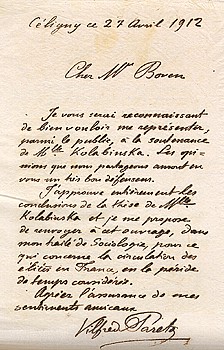 Céligny ce 27 Avril 1912
Cher Mr Boven
Je vous serai reconnaissant
de bien vouloir me représenter,
parmi le public, à la soutenance
de Mlle Kolabinska. Les opi-
nions que nous partageons auront en
vous un très bon défenseur.
J'approuve entièrement les
conclusions de la thèse de Mlle
Kolabinska et je me propose
de renvoyer à cet ouvrage, dans
mon traité de Sociologie, pour ce
qui concerne la circulation des
élites en France, en la période
de temps considérée.
Agréez l'assurance de mes
sentiments amicaux
Vilfredo Pareto